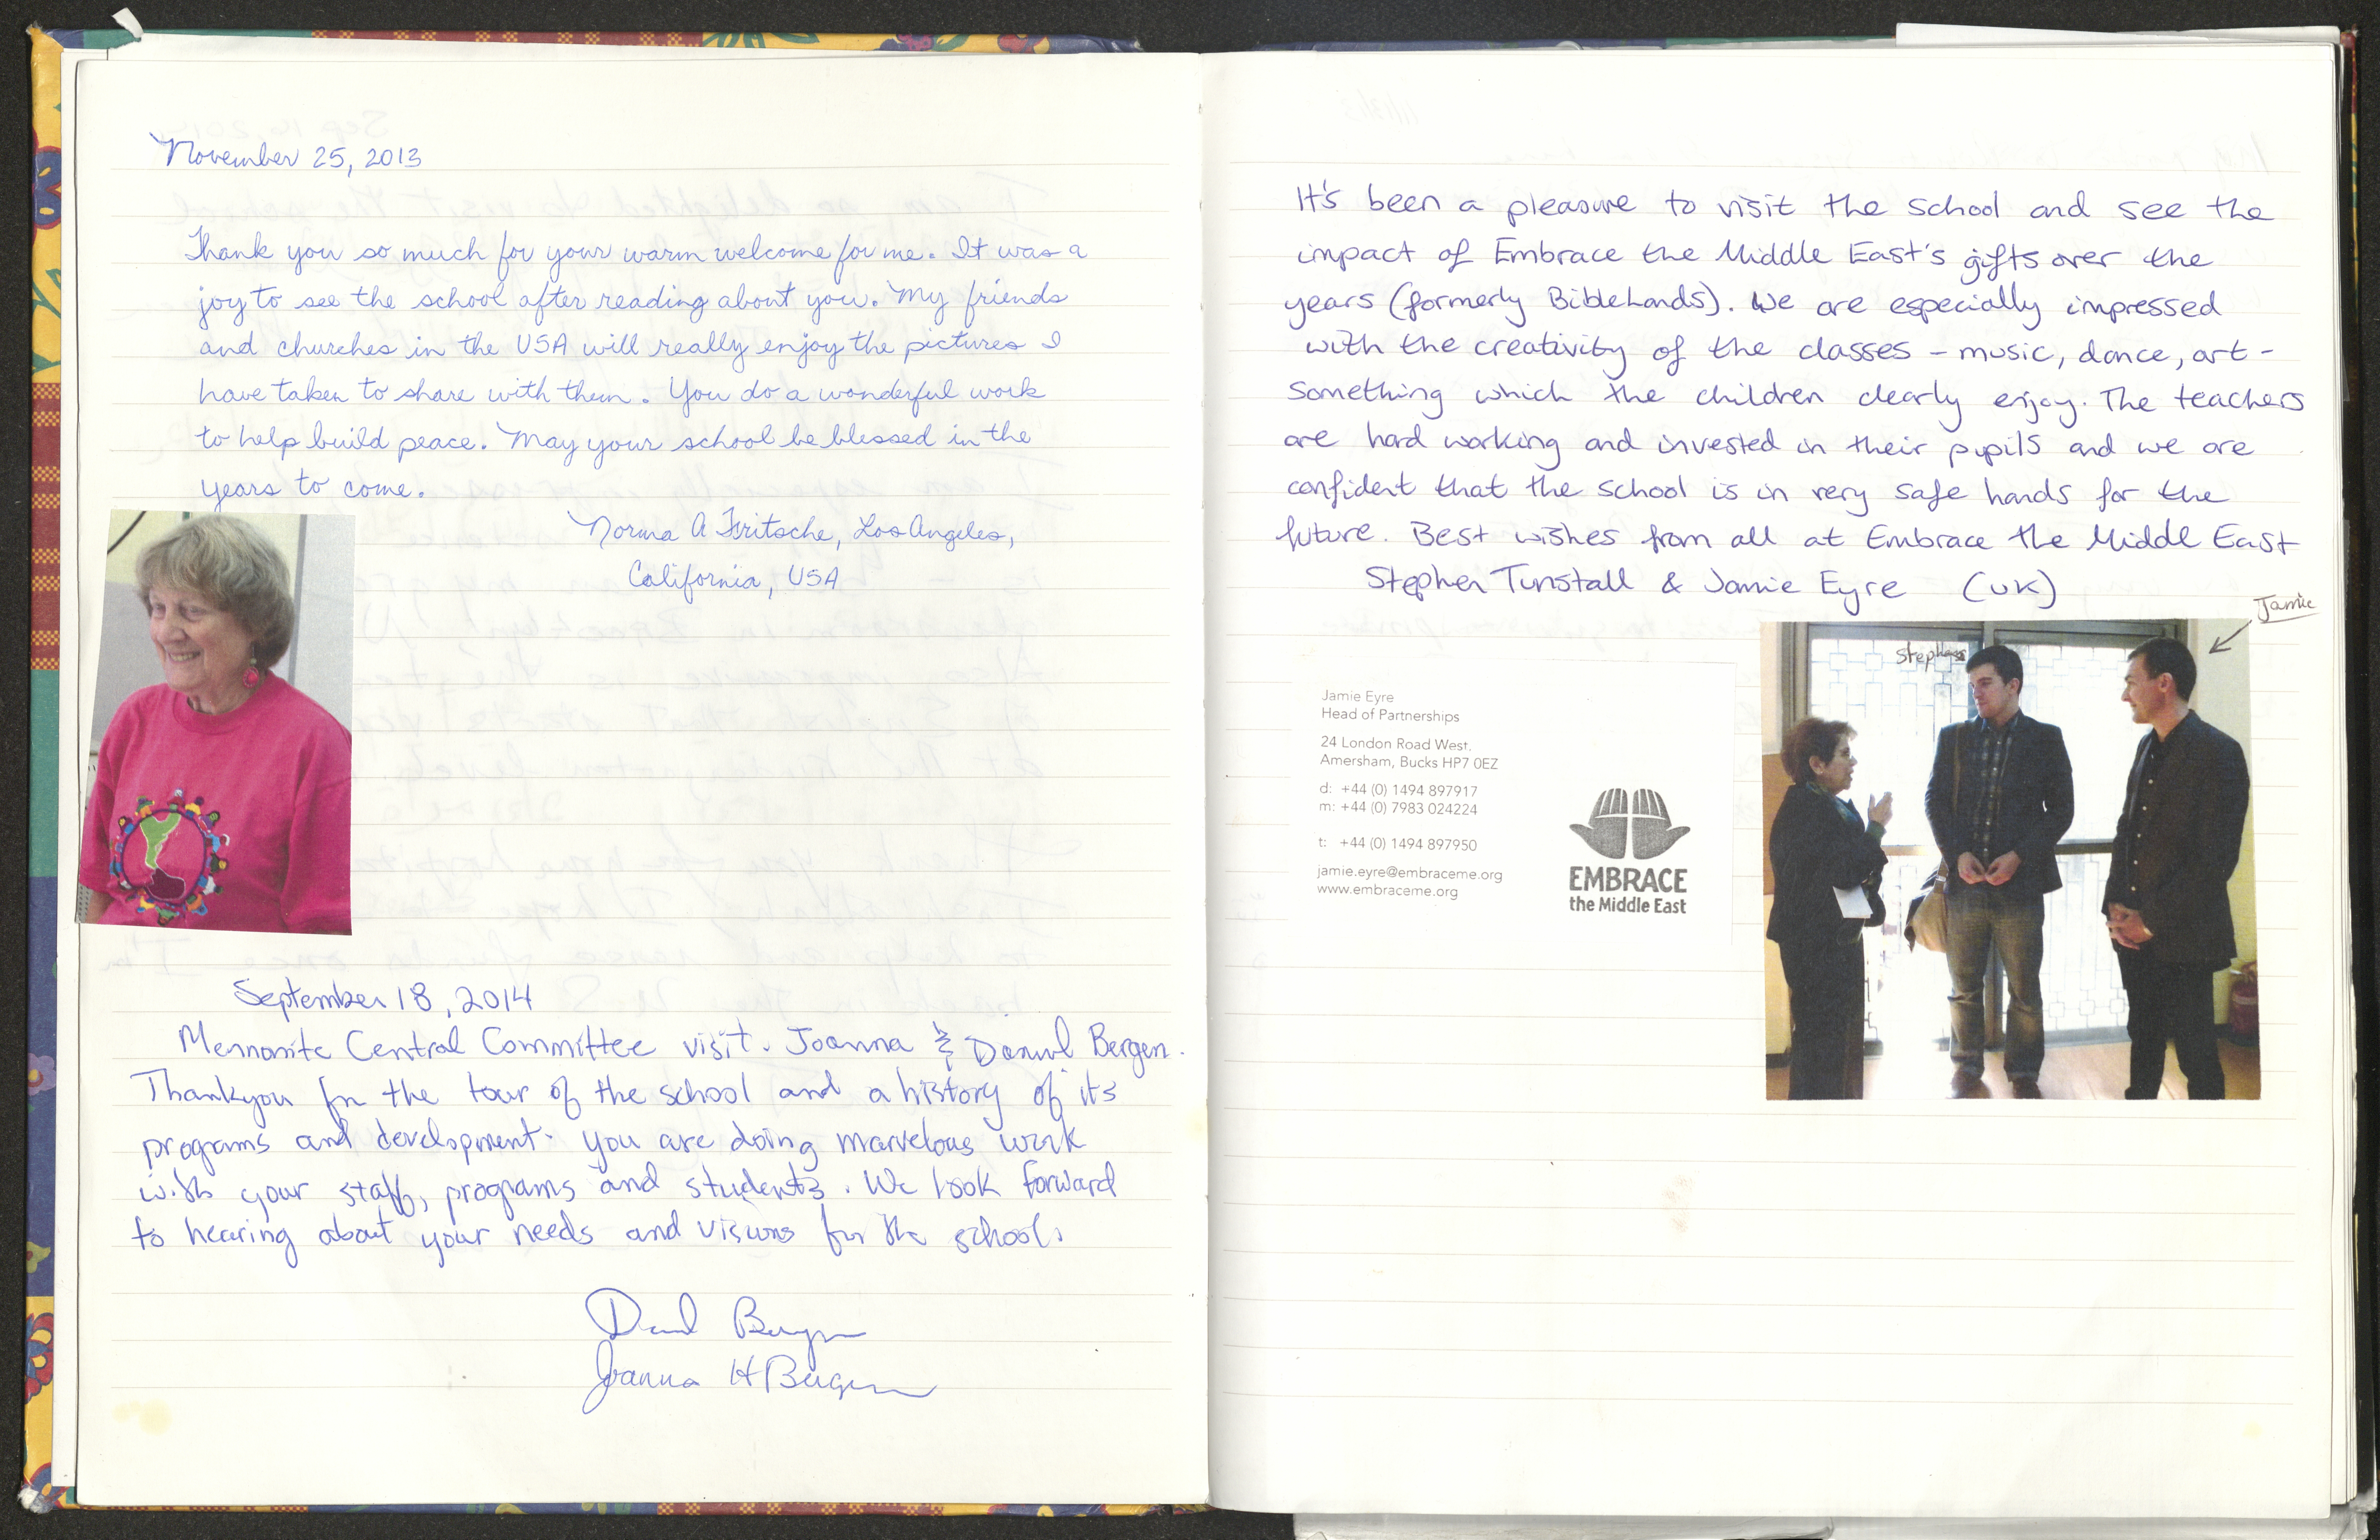 November 25, 2013
Thank you so much for your warm welcome for me. It was a
joy to see the school after reading about you. My friends
and churches in the USA will really enjoy the pictures I
have taken to share with them. You do a wonderful work
to help build peace. May your school be blessed in the
years to come.
Norma A Fritsche, Los Angeles,
California, USA
September 18, 2014
Mennonite Central Committee visit. Joanna & Daniel Bergen.
Thankyou for the tour of the school and a history of its
programs and development. You are doing marvelous work
with your staff, programs and students. We look forward
to hearing about your needs and visions for the school.
Daniel Bergen
Joanna H Bergen
It's been a pleasure to visit the school and see the
impact of Embrace the Middle East's gifts over the
years (formerly BibleLands). We are especially impressed
with the creativity of the classes - music, dance, art -
something which the children clearly enjoy. The teachers
are hard working and invested in their pupils and we are
confident that the school is in very safe hands for the
future. Best wishes from all at Embrace the Middl East
Stephen Tunstall & Jamie Eyre (UK)
Jamie
Stephen
Jamie Eyre
Head of Partnerships
24 London Road West,
Amersham, Bucks HP7 0EZ
d: +44 (0) 1494 897917
m: +44 (0) 7983 024224
t: +44 (0) 1494 897950
jamie.eyre@embraceme.org
www.embraceme.org
EMBRACE
the Middle East